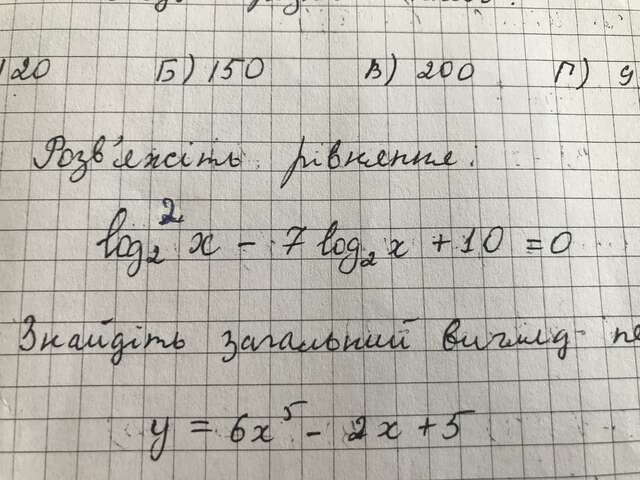 120 Б) 150 В) 200 Г) 9
Розв'яжіть рівняння:
log₂² x - 7 log₂ x + 10 = 0
Знайдіть загальний вигляд пе
y = 6x⁵ - 2x + 5